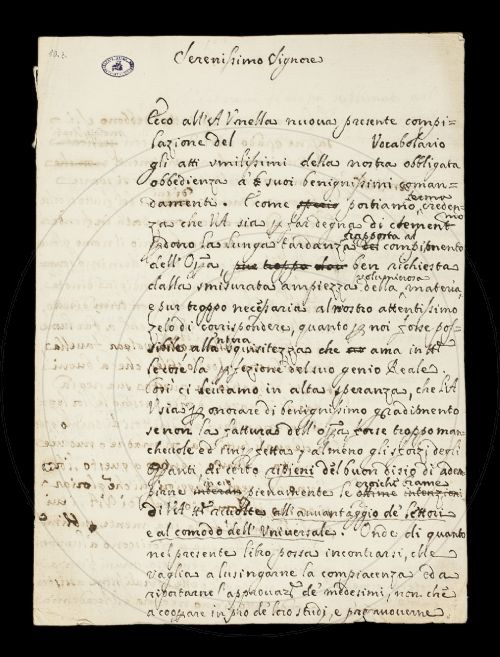 Serenissimo Signore
Ecco all'A V. nella nuova presente compi=
lazione del Vocabolario
gli atti vmilissimi della nostra obbligata
obbedienza a' suoi benignissimi coman=
damenti. E come portiamo ferma creden=
za che VA sia p far degna di clement
Perdono la lunga tardanza rapporta al compimento
dell'Opra, pur troppo ben richiesta
dalla smisurata ampiezza della voluminosa materia,
e pur troppo necessaria al nostro attentissimo
zelo di corrispondere, quanto p noi fosse pos=
sibile alla squisitezza che ama in
la perfezione del suo genio Reale.
Così ci leviamo in alta speranza, che l'A
V sia p onorare di benignissimo gradimento
se non la fattura dell'opra forse troppo man=
chevole ed imperfetta, almeno gli sforzi degli
di certo ripieni del buon disio di adem
piere pienamente le eroiche brame
intenzioni
di V.A. all'avvantaggio de' lettori
e al comodo dell'Universale. Onde di quanto
nel presente libro possa incontrarsi, che
vaglia a lusingarne la compiacenza ed a
riportarne l'approvaz de' medesimi, non che
a cooperare in pro de' loro studi, e